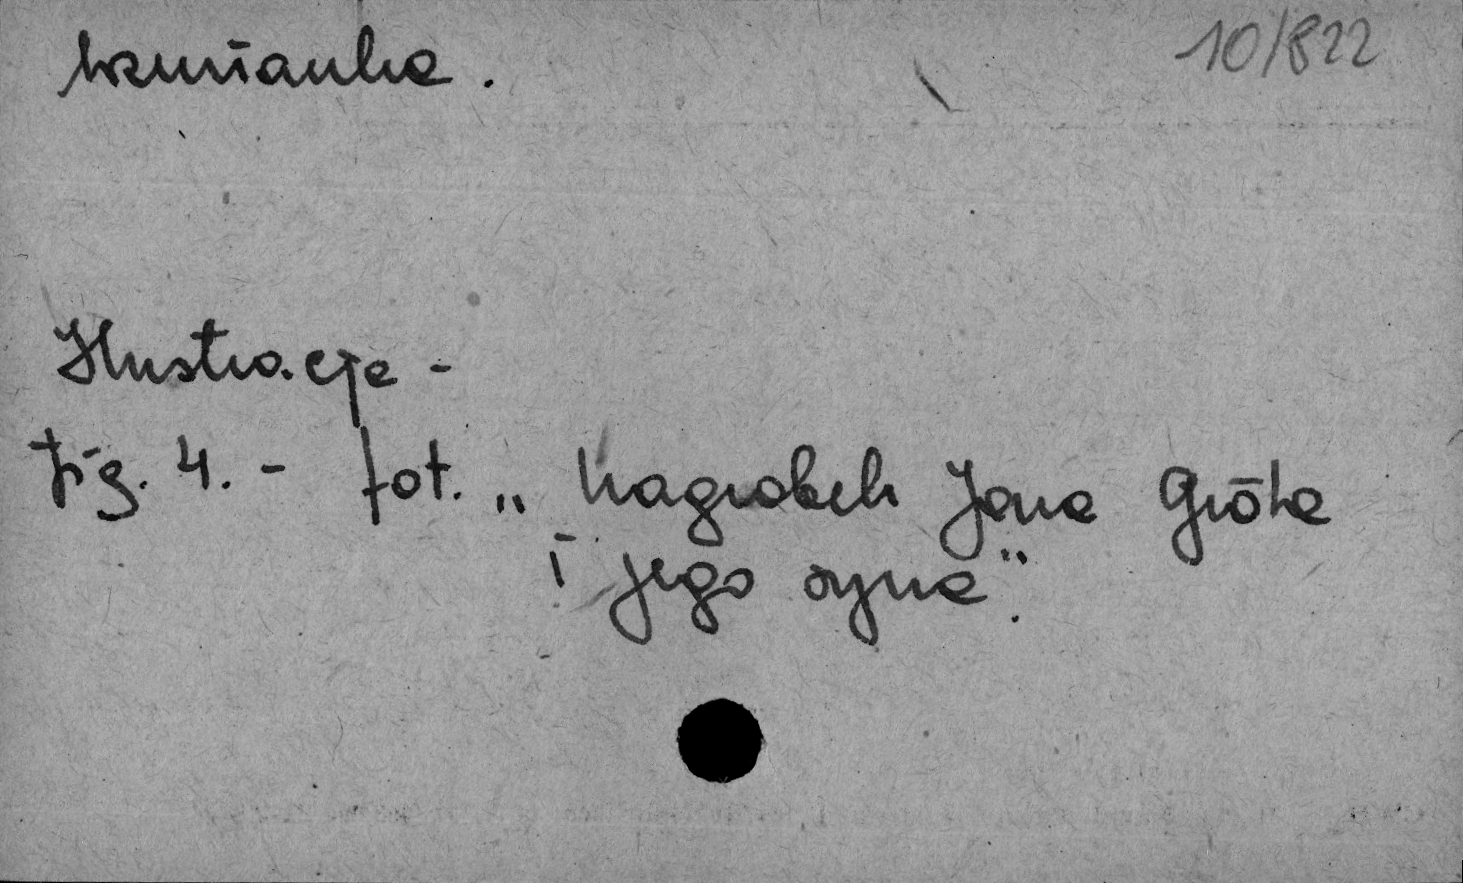 wzmianka.
10/822
Ilustracje -
fig. 4. - fot. „Nagrobek Jana Grōta
i jego syna”.